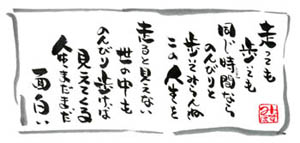 走っても
歩いても
同じ時間なら
のんびりと
歩いてみらんね
この人生を
走ると見えない
世の中も
のんびり歩けば
見えてくる
人生まだまだ
面白い